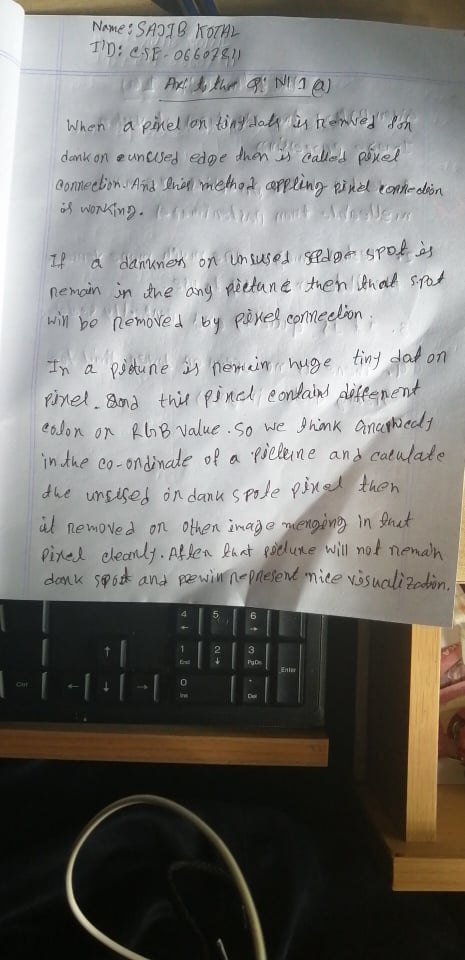 Name: SAJIB KOTAL
ID: CSE-06607811
Ans to the Q: N: 1 (a)
When a pixel or tiny dats is remved for
dark or unused edge then is called pixel
connection. And this method appling pixel connection
is working.
If a darkness or unsused edge spot is
remain in the any picture then that spot
will be removed by pixel connection.
In a picture is remain huge tiny dat or
pixel. And this pixel contains different
color or RGB value. So we think graphicaly
in the co-ordinate of a picture and caculate
the unused or dark spote pixel then
it removed or other image merging in that
pixel cleanly. After that picture will not remain
dark spot and represent nice visualization.
4 5 6
← →
1 2 3
End ↓ PgDn
Enter
0 .
Ins Del
Ctrl ← ↑ ↓ →